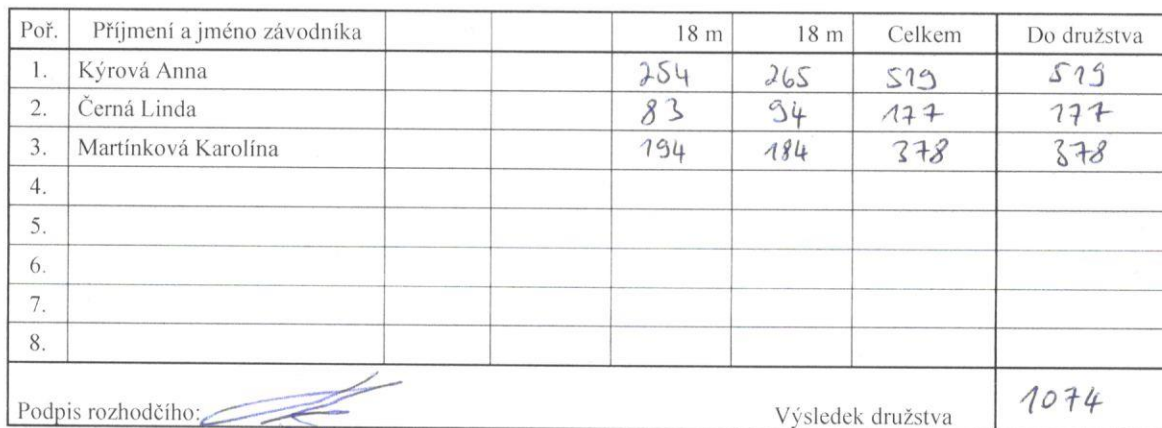 Poř. Příjmení a jméno závodníka 18 m 18 m Celkem Do družstva
1. Kýrová Anna 254 265 519 519
2. Černá Linda 83 94 177 177
3. Martínková Karolína 194 184 378 378
4.
5.
6.
7.
8.
Podpis rozhodčího: Výsledek družstva 1074